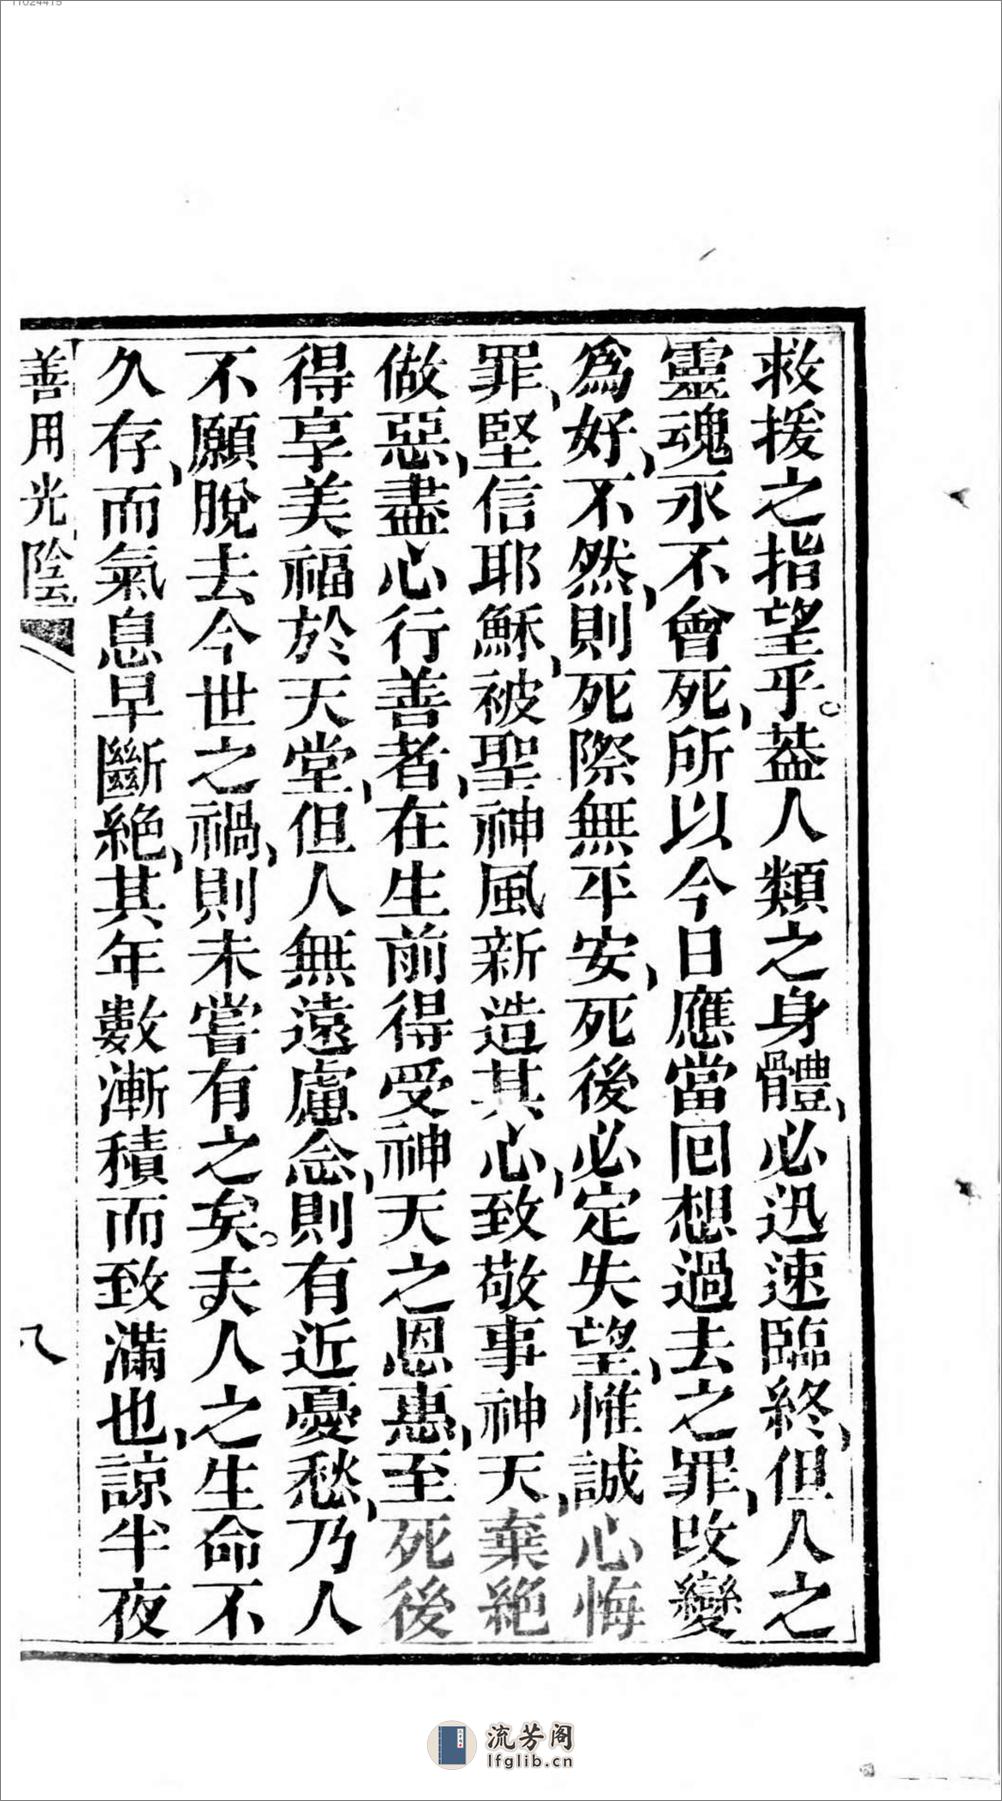 救援之指望乎。葢人類之身體、必迅速臨終、但人之
靈魂永不會死、所以今日應當回想過去之罪、改變
爲好、不然、則死際無平安、死後必定失望、惟誠心悔
罪、堅信耶穌、被聖神風新造其心、致敬事神天、棄絕
做惡、盡心行善者、在生前得受神天之恩惠、至死後
得享美福於天堂、但人無遠慮念、則有近憂愁、乃人
不願脫去今世之禍、則未嘗有之矣。夫人之生命不
久存、而氣息早斷絕、其年數漸積而致滿也、諒半夜
善用光陰
八
流芳阁
lfglib.cn